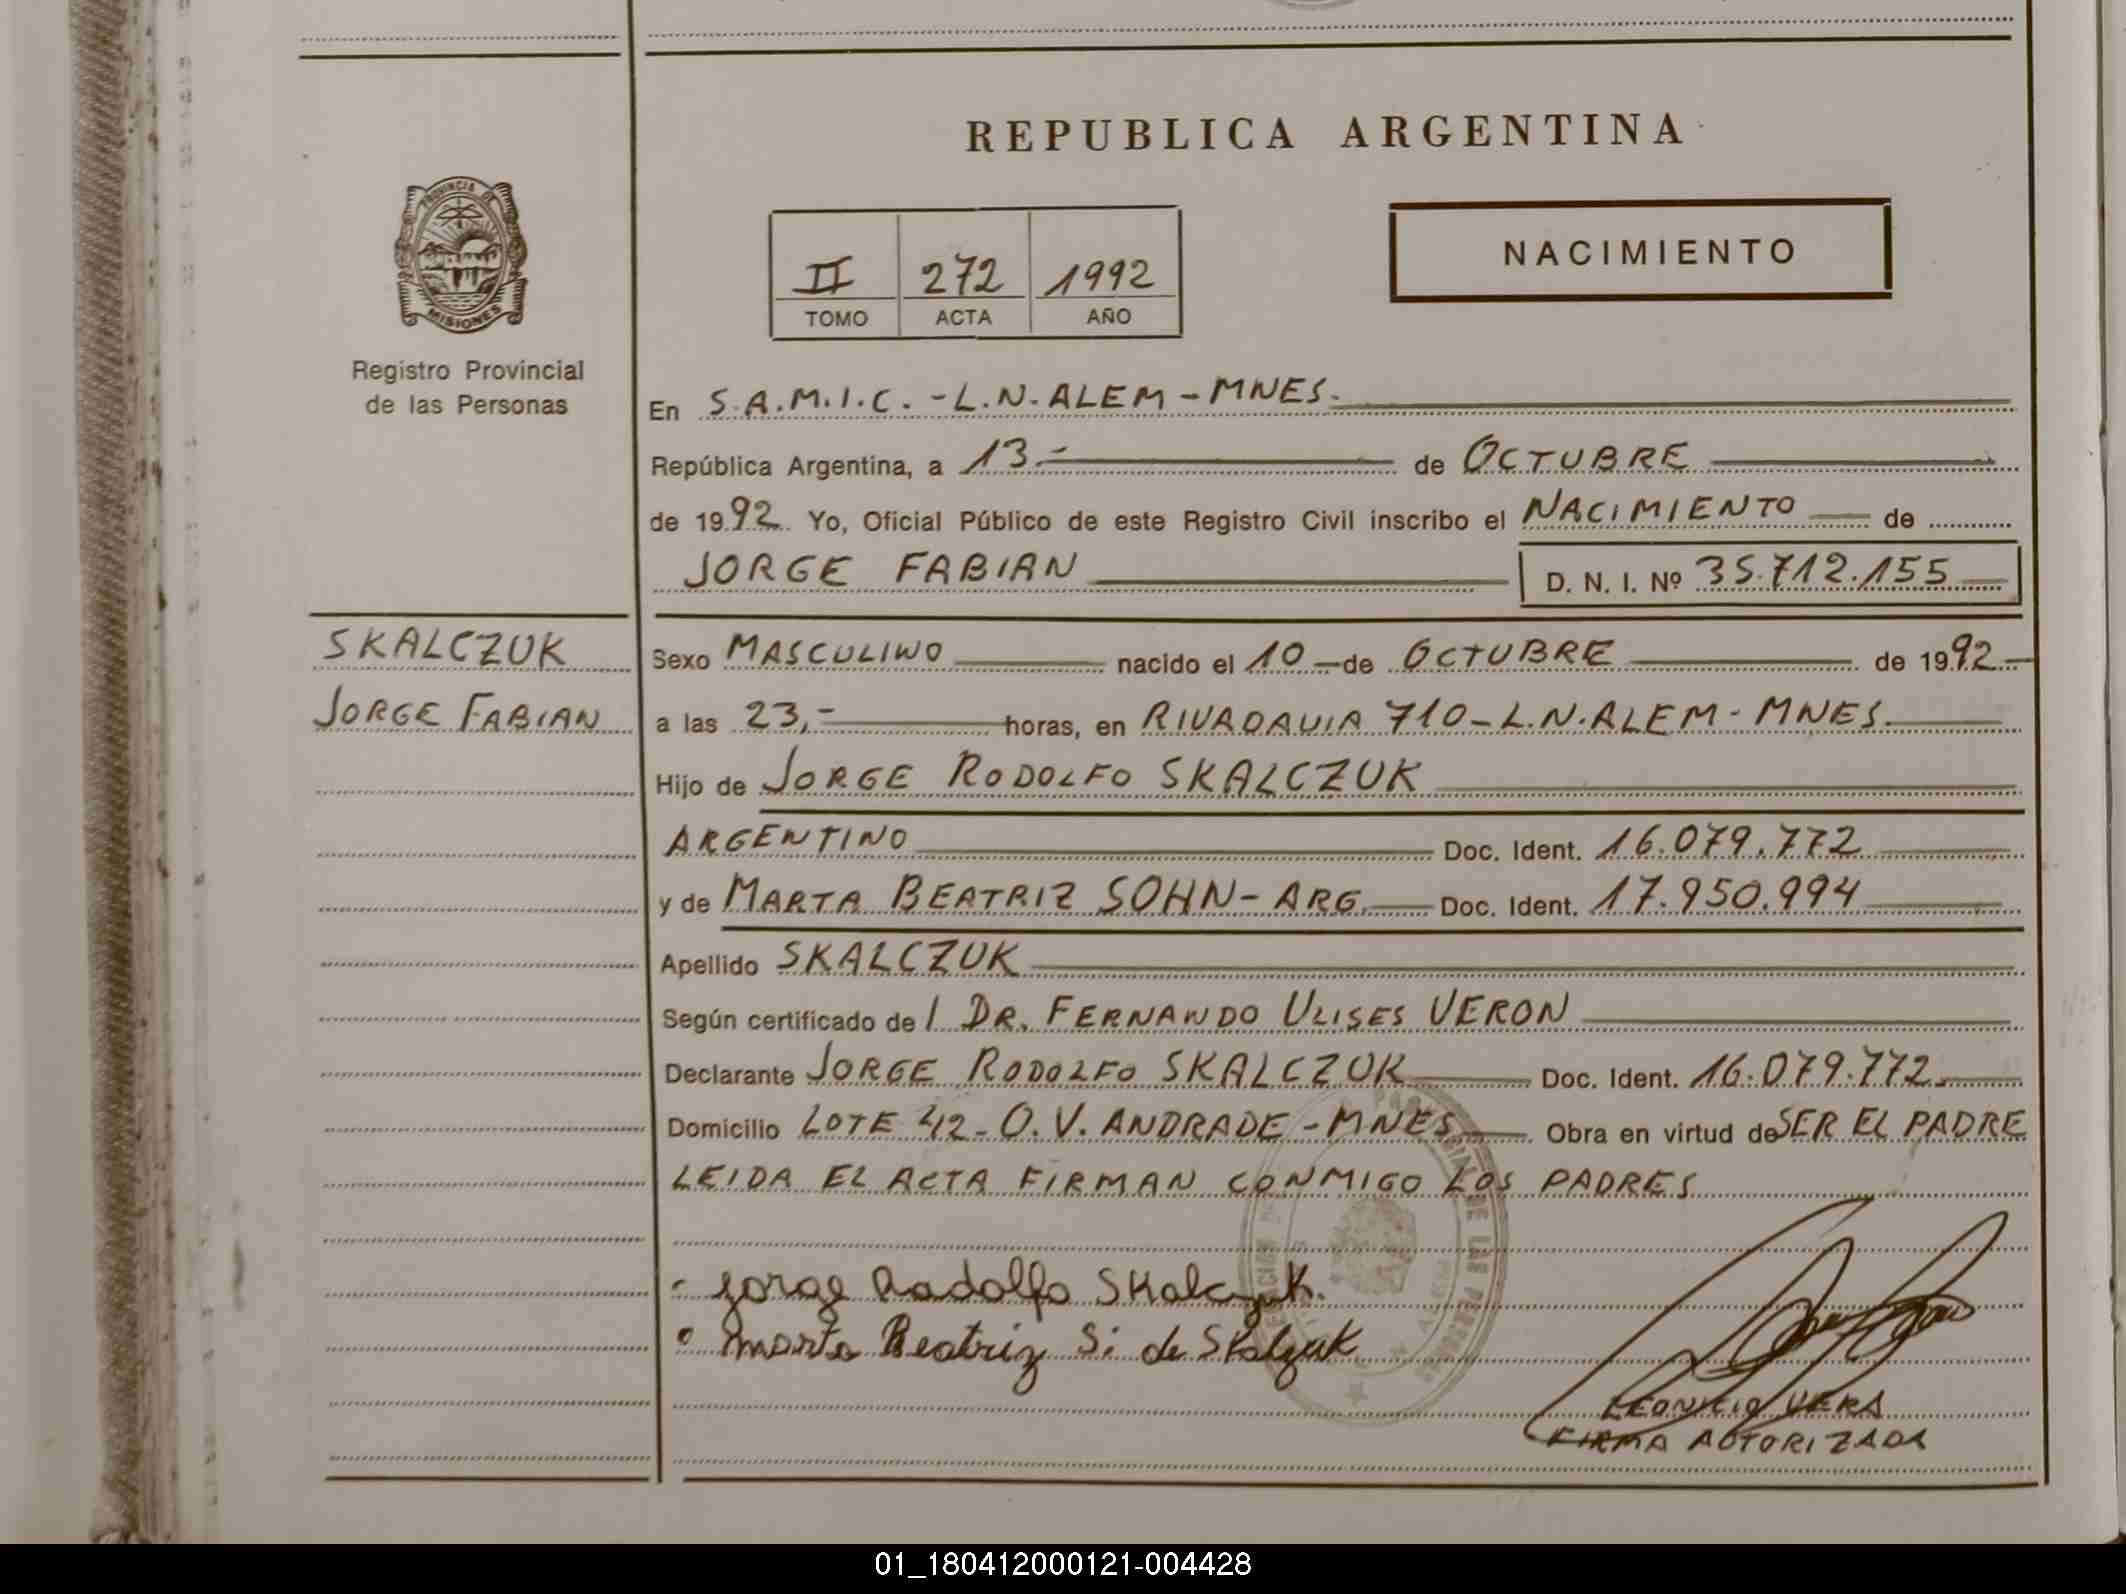 REPUBLICA ARGENTINA
PROVINCIA DE
MISIONES
Registro Provincial
de las Personas
II 272 1992
TOMO ACTA AÑO
NACIMIENTO
En S.A.M.I.C. - L.N. ALEM - MNES.
República Argentina, a 13.- de OCTUBRE
de 1992 Yo, Oficial Público de este Registro Civil inscribo el NACIMIENTO de
JORGE FABIAN D. N. I. Nº 35.712.155
SKALCZUK
JORGE FABIAN
Sexo MASCULINO nacido el 10 de OCTUBRE de 1992
a las 23,- horas, en RIVADAVIA 710 - L.N. ALEM - MNES.
Hijo de JORGE RODOLFO SKALCZUK
ARGENTINO Doc. Ident. 16.079.772
y de MARTA BEATRIZ SOHN - ARG. Doc. Ident. 17.950.994
Apellido SKALCZUK
Según certificado de l DR. FERNANDO ULISES VERON
Declarante JORGE RODOLFO SKALCZUK Doc. Ident. 16.079.772.
Domicilio LOTE 42 - O.V. ANDRADE - MNES. Obra en virtud de SER EL PADRE
LEIDA EL ACTA FIRMAN CONMIGO LOS PADRES
Jorge Rodolfo Skalczuk.
Marta Beatriz S. de Skalzuk
LEONICIO VERA
FIRMA AUTORIZADA
01_180412000121-004428